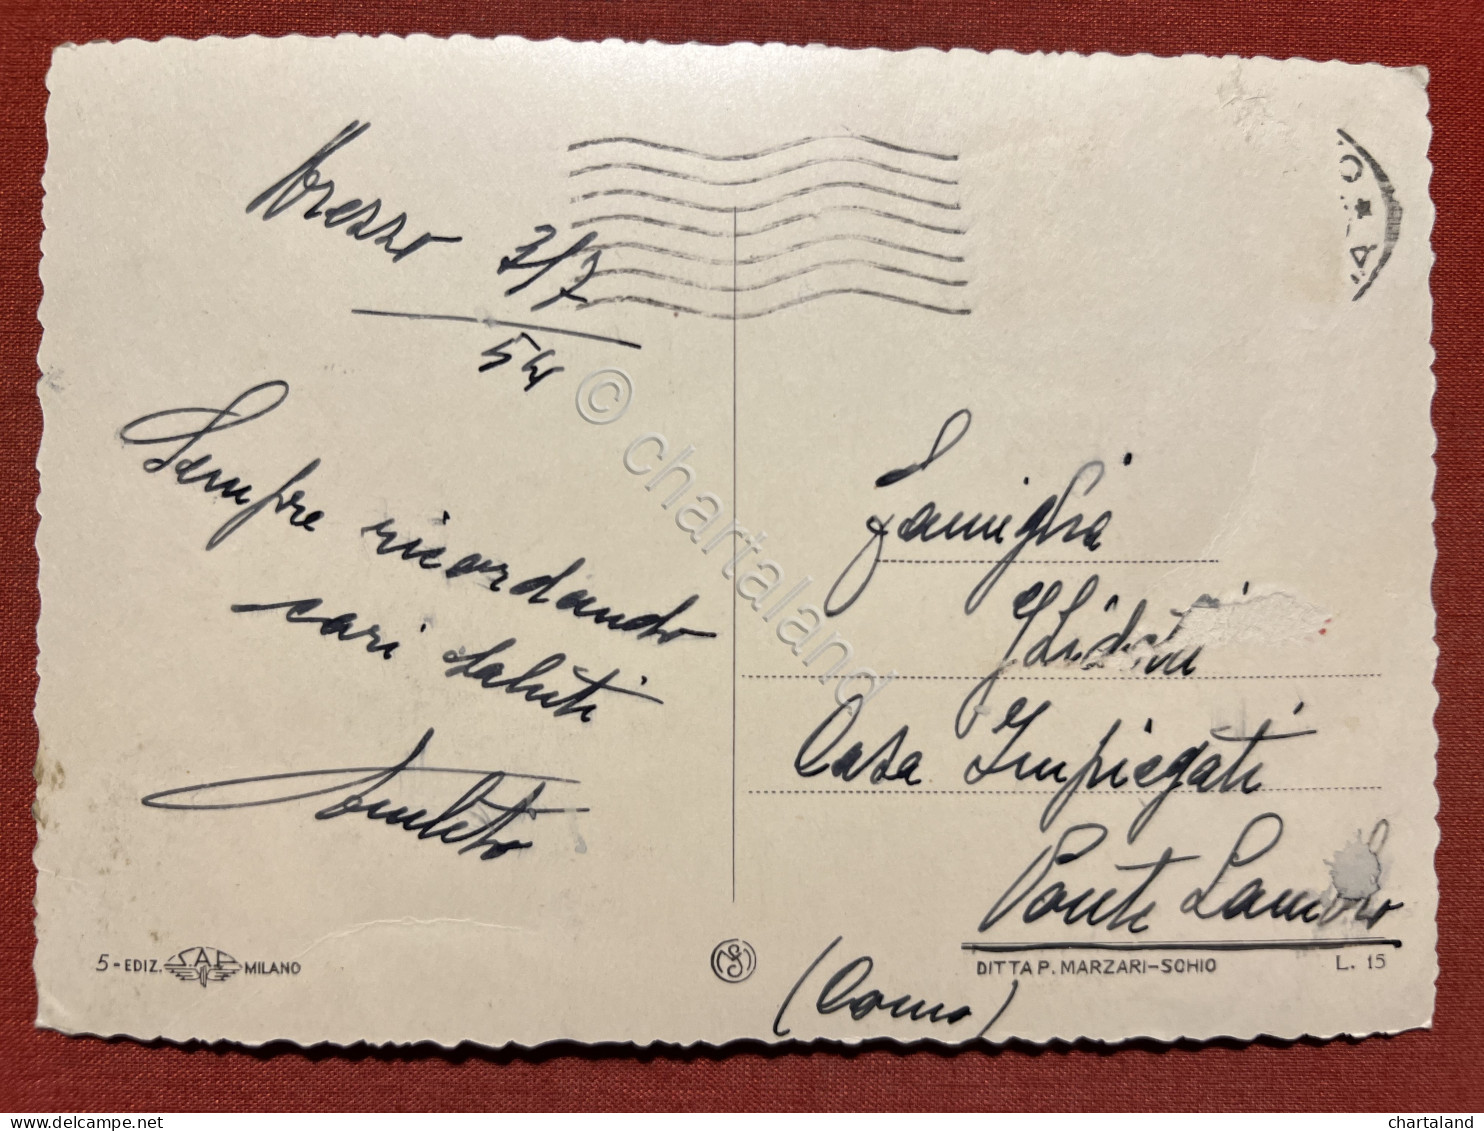 Arezzo 7/7
54
Sempre ricordando
cari saluti
Amleto
Famiglia
Casa Impiegati
Ponte Lambro
(Como)
5-EDIZ. S.A.F. MILANO
DITTA P. MARZARI-SCHIO L. 15
© chartaland
chartaland